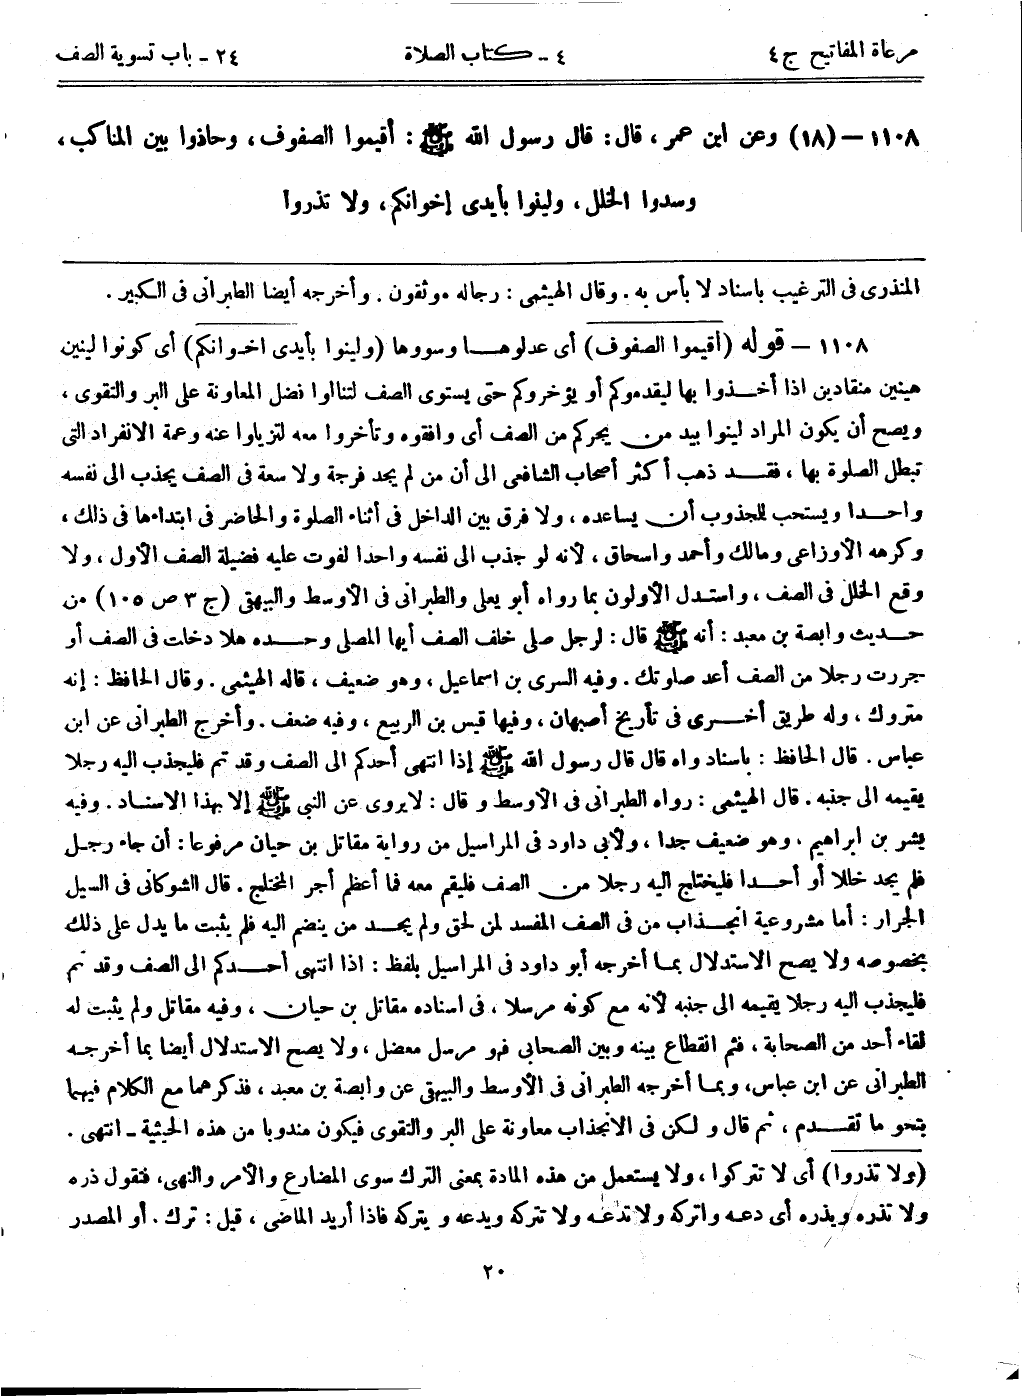 مرعاة المفاتيح ج ٤
٤ - كتاب الصلاة
٢٤ - باب تسوية الصف
١١٠٨ – (١٨) وعن ابن عمر ، قال : قال رسول الله ﷺ : أقيموا الصفوف ، وحاذوا بين المناكب ،
وسدوا الخلل ، ولينوا بأيدى إخوانكم ، ولا تذروا
المنذرى فى الترغيب باسناد لا بأس به . وقال الهيثمى : رجاله موثقون . وأخرجه أيضا الطبرانى فى الكبير .
١١٠٨ – قوله (أقيموا الصفوف) أى عدلوهـا وسووها (ولينوا بأيدى اخوانكم) أى كونوا لينين
هينين منقادين اذا أخذوا بها ليقدموكم أو يؤخروكم حتى يستوى الصف لتنالوا فضل المعاونة على البر والتقوى ،
ويصح أن يكون المراد لينوا بيد من يجركم من الصف أى وافقوه وتأخروا معه لتزيلوا عنه وصمة الانفراد التى
تبطل الصلوة بها ، فقد ذهب أكثر أصحاب الشافعى الى أن من لم يجد فرجة ولا سعة فى الصف يجذب الى نفسه
واحدا ويستحب للمجذوب أن يساعده ، ولا فرق بين الداخل فى أثناء الصلوة والحاضر فى ابتداءها فى ذلك ،
وكرهه الأوزاعى ومالك وأحمد واسحاق ، لأنه لو جذب الى نفسه واحدا لفوت عليه فضيلة الصف الأول ، ولا
وقع الخلل فى الصف ، واستدل الأولون بما رواه أبو يعلى والطبرانى فى الأوسط والبيهقى (ج ٣ ص ١٠٥) من
حديث وابصة بن معبد : أنه ﷺ قال : لرجل صلى خلف الصف أيها المصلى وحده هلا دخلت فى الصف أو
جررت رجلا من الصف أعد صلوتك . وفيه السرى بن اسماعيل ، وهو ضعيف ، قاله الهيثمى . وقال الحافظ : إنه
متروك ، وله طريق أخرى فى تأريخ أصبهان ، وفيها قيس بن الربيع ، وفيه ضعف . وأخرج الطبرانى عن ابن
عباس . قال الحافظ : باسناد واه قال قال رسول الله ﷺ إذا انتهى أحدكم الى الصف وقد تم فليجذب اليه رجلا
يقيمه الى جنبه . قال الهيثمى : رواه الطبرانى فى الأوسط و قال : لايروى عن النبى ﷺ إلا بهذا الاسناد . وفيه
بشر بن ابراهيم ، وهو ضعيف جدا ، ولأبى داود فى المراسيل من رواية مقاتل بن حيان مرفوعا : أن جاء رجل
فلم يجد خللا أو أحدا فليختلج اليه رجلا من الصف فليقم معه فما أعظم أجر المختلج . قال الشوكانى فى السيل
الجرار : أما مشروعية انجذاب من فى الصف المفسد لمن لحق ولم يجد من ينضم اليه فلم يثبت ما يدل على ذلك
بخصوصه ولا يصح الاستدلال بما أخرجه أبو داود فى المراسيل بلفظ : اذا انتهى أحدكم الى الصف وقد تم
فليجذب اليه رجلا يقيمه الى جنبه لأنه مع كونه مرسلا ، فى اسناده مقاتل بن حيان ، وفيه مقاتل ولم يثبت له
لقاء أحد من الصحابة ، فثم انقطاع بينه وبين الصحابى فهو مرسل معضل ، ولا يصح الاستدلال أيضا بما أخرجه
الطبرانى عن ابن عباس، وبما أخرجه الطبرانى فى الأوسط والبيهقى عن وابصة بن معبد ، فذكرهما مع الكلام فيهما
بنحو ما تقدم ، ثم قال و لكن فى الانجذاب معاونة على البر والتقوى فيكون مندوبا من هذه الحيثية - انتهى .
(ولا تذروا) أى لا تتركوا ، ولا يستعمل من هذه المادة بمعنى الترك سوى المضارع والأمر والنهى، فتقول ذره
ولا تذره ويذره أى دعه واتركه ولا تدعه ولا تتركه ويدعه و يتركه فاذا أريد الماضى ، قيل : ترك . أو المصدر
٢٠